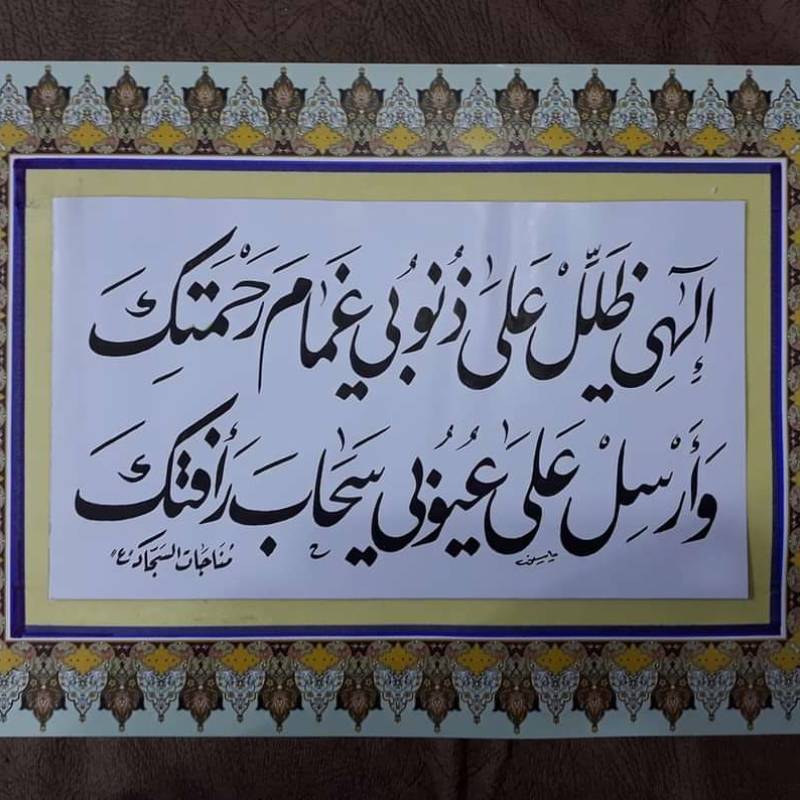 إِلٰهِي ظَلِّلْ عَلَىٰ ذُنُوبِي غَمَامَ رَحْمَتِكَ
وَأَرْسِلْ عَلَىٰ عُيُوبِي سَحَابَ رَأْفَتِكَ
مُنَاجَات السَّجَّاد ع